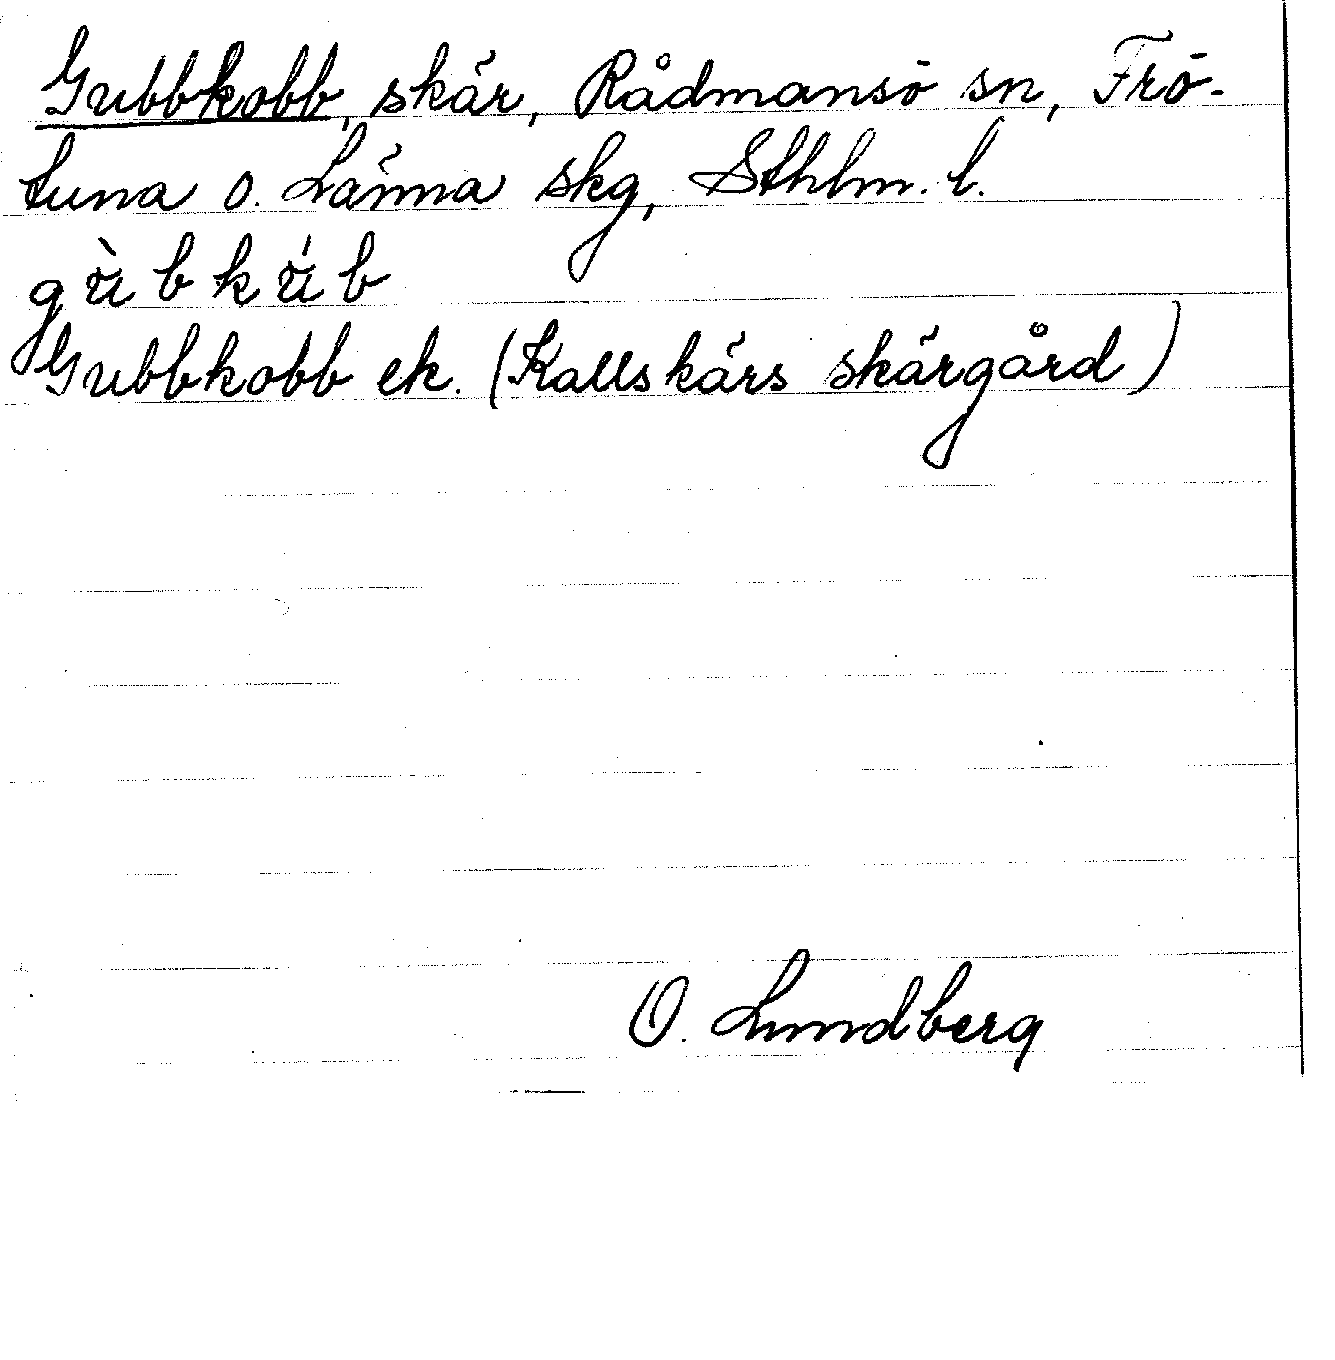 Gubbkobb, skär, Rådmansö sn, Frö-
tuna o. Länna skg, Sthlm. l.
gù̈bkű̀b
Gubbkobb ek. (Kallskärs skärgård)
O. Lundberg